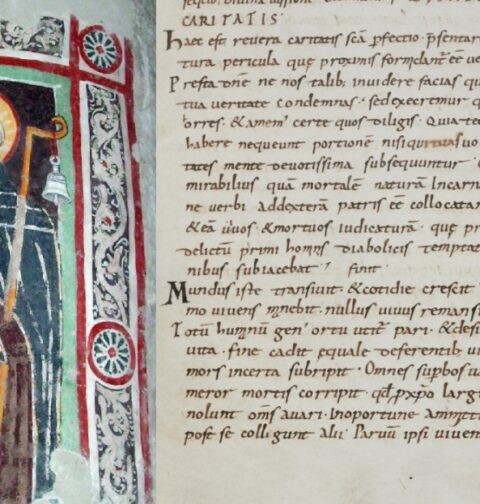 CARITATIS·
Haec est reuera caritatis scā p̄fectio. p̄sentar
tura pericula quę proximis formidant ēē ue
Presta dn̄e ne nos talib; inuidere facias qu
tua ueritate condemnas· sed execremur q
orres. &amem' certe quos diligis. Quia te
habere nequeunt portionē nisi qui tua suo
tates mente deuotissima subsequuntur
mirabilius quā mortalē naturā Incarn
ne uerbi addexterā patris ēē collocata
&eā uiuos &mortuos iudicaturā. quę pr
delictū primi hominis diabolicis temptat
nibus subiacebat finit
Mundus iste transiuit. &cotidie crescit
mo uivens manebit. nullus uiuus remansi
Totū humanū gen' ortu utit̄ pari. &desi
uita. fine cadit equale deferentib; ui
mors incerta subripit. Omnes sup̄bos u
meror mortis corripit. qđ p xp̄o larg
nolunt om̄s auari. Inoportune ammitt
post se colligunt alii. Paruū ipsi uiven